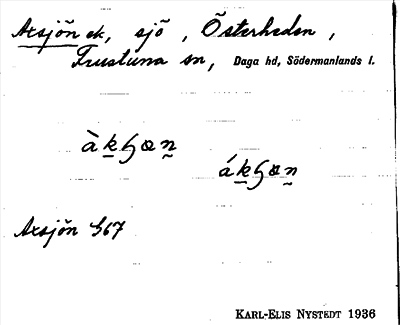 Axsjön ek, sjö, Österheden,
Frustuna sn, Daga hd, Södermanlands l.
Axsjön G67
KARL-ELIS NYSTEDT 1936